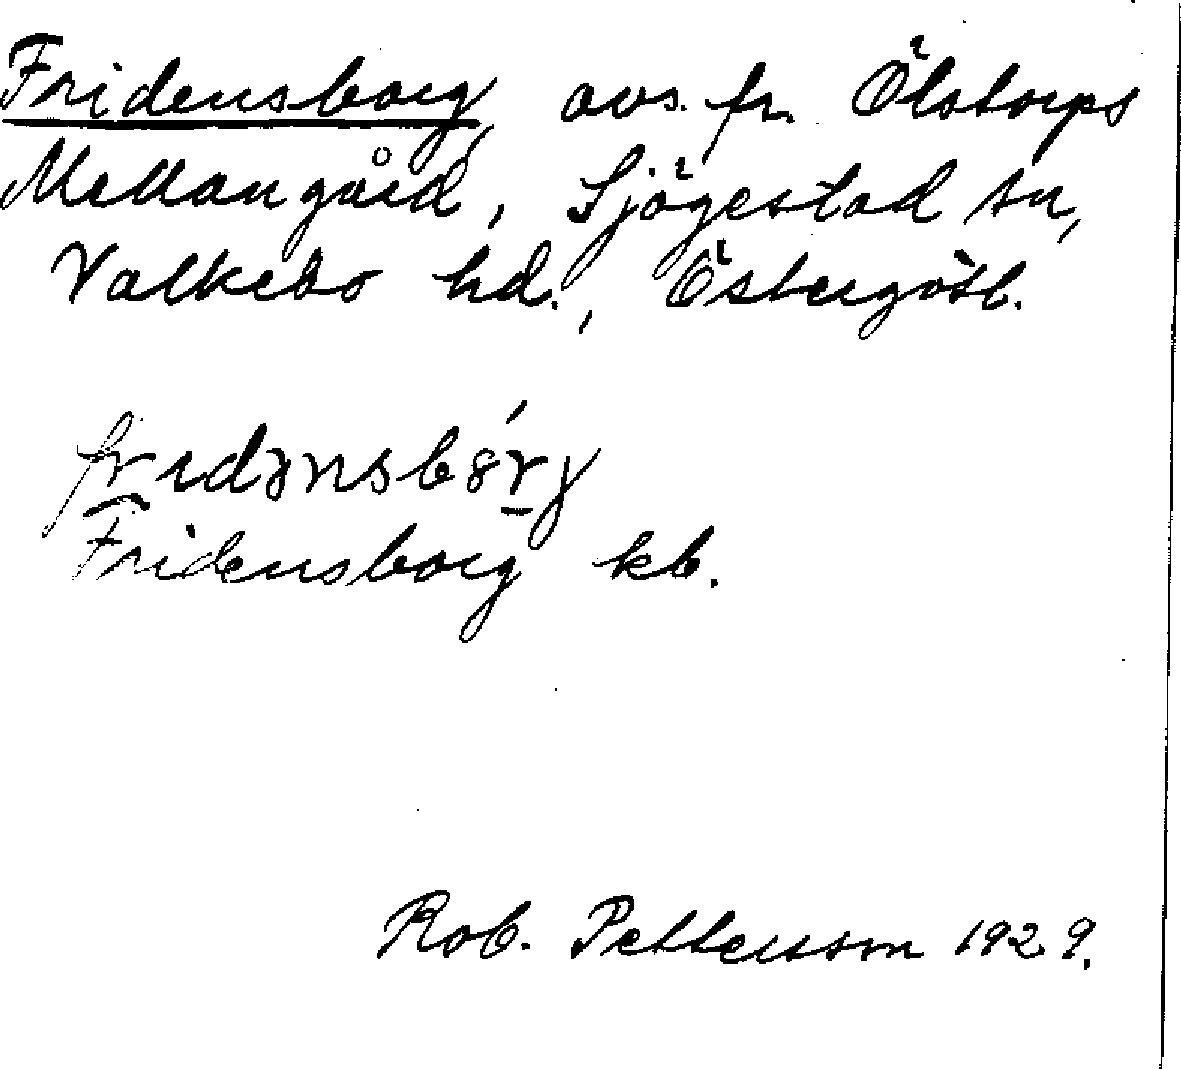 Fridensborg, avs. fr. Ölstorps
Mellangård, Sjögestad sn,
Valkebo hd., Östergötl.
Fridensborg kb.
Rob. Pettersson 1929.